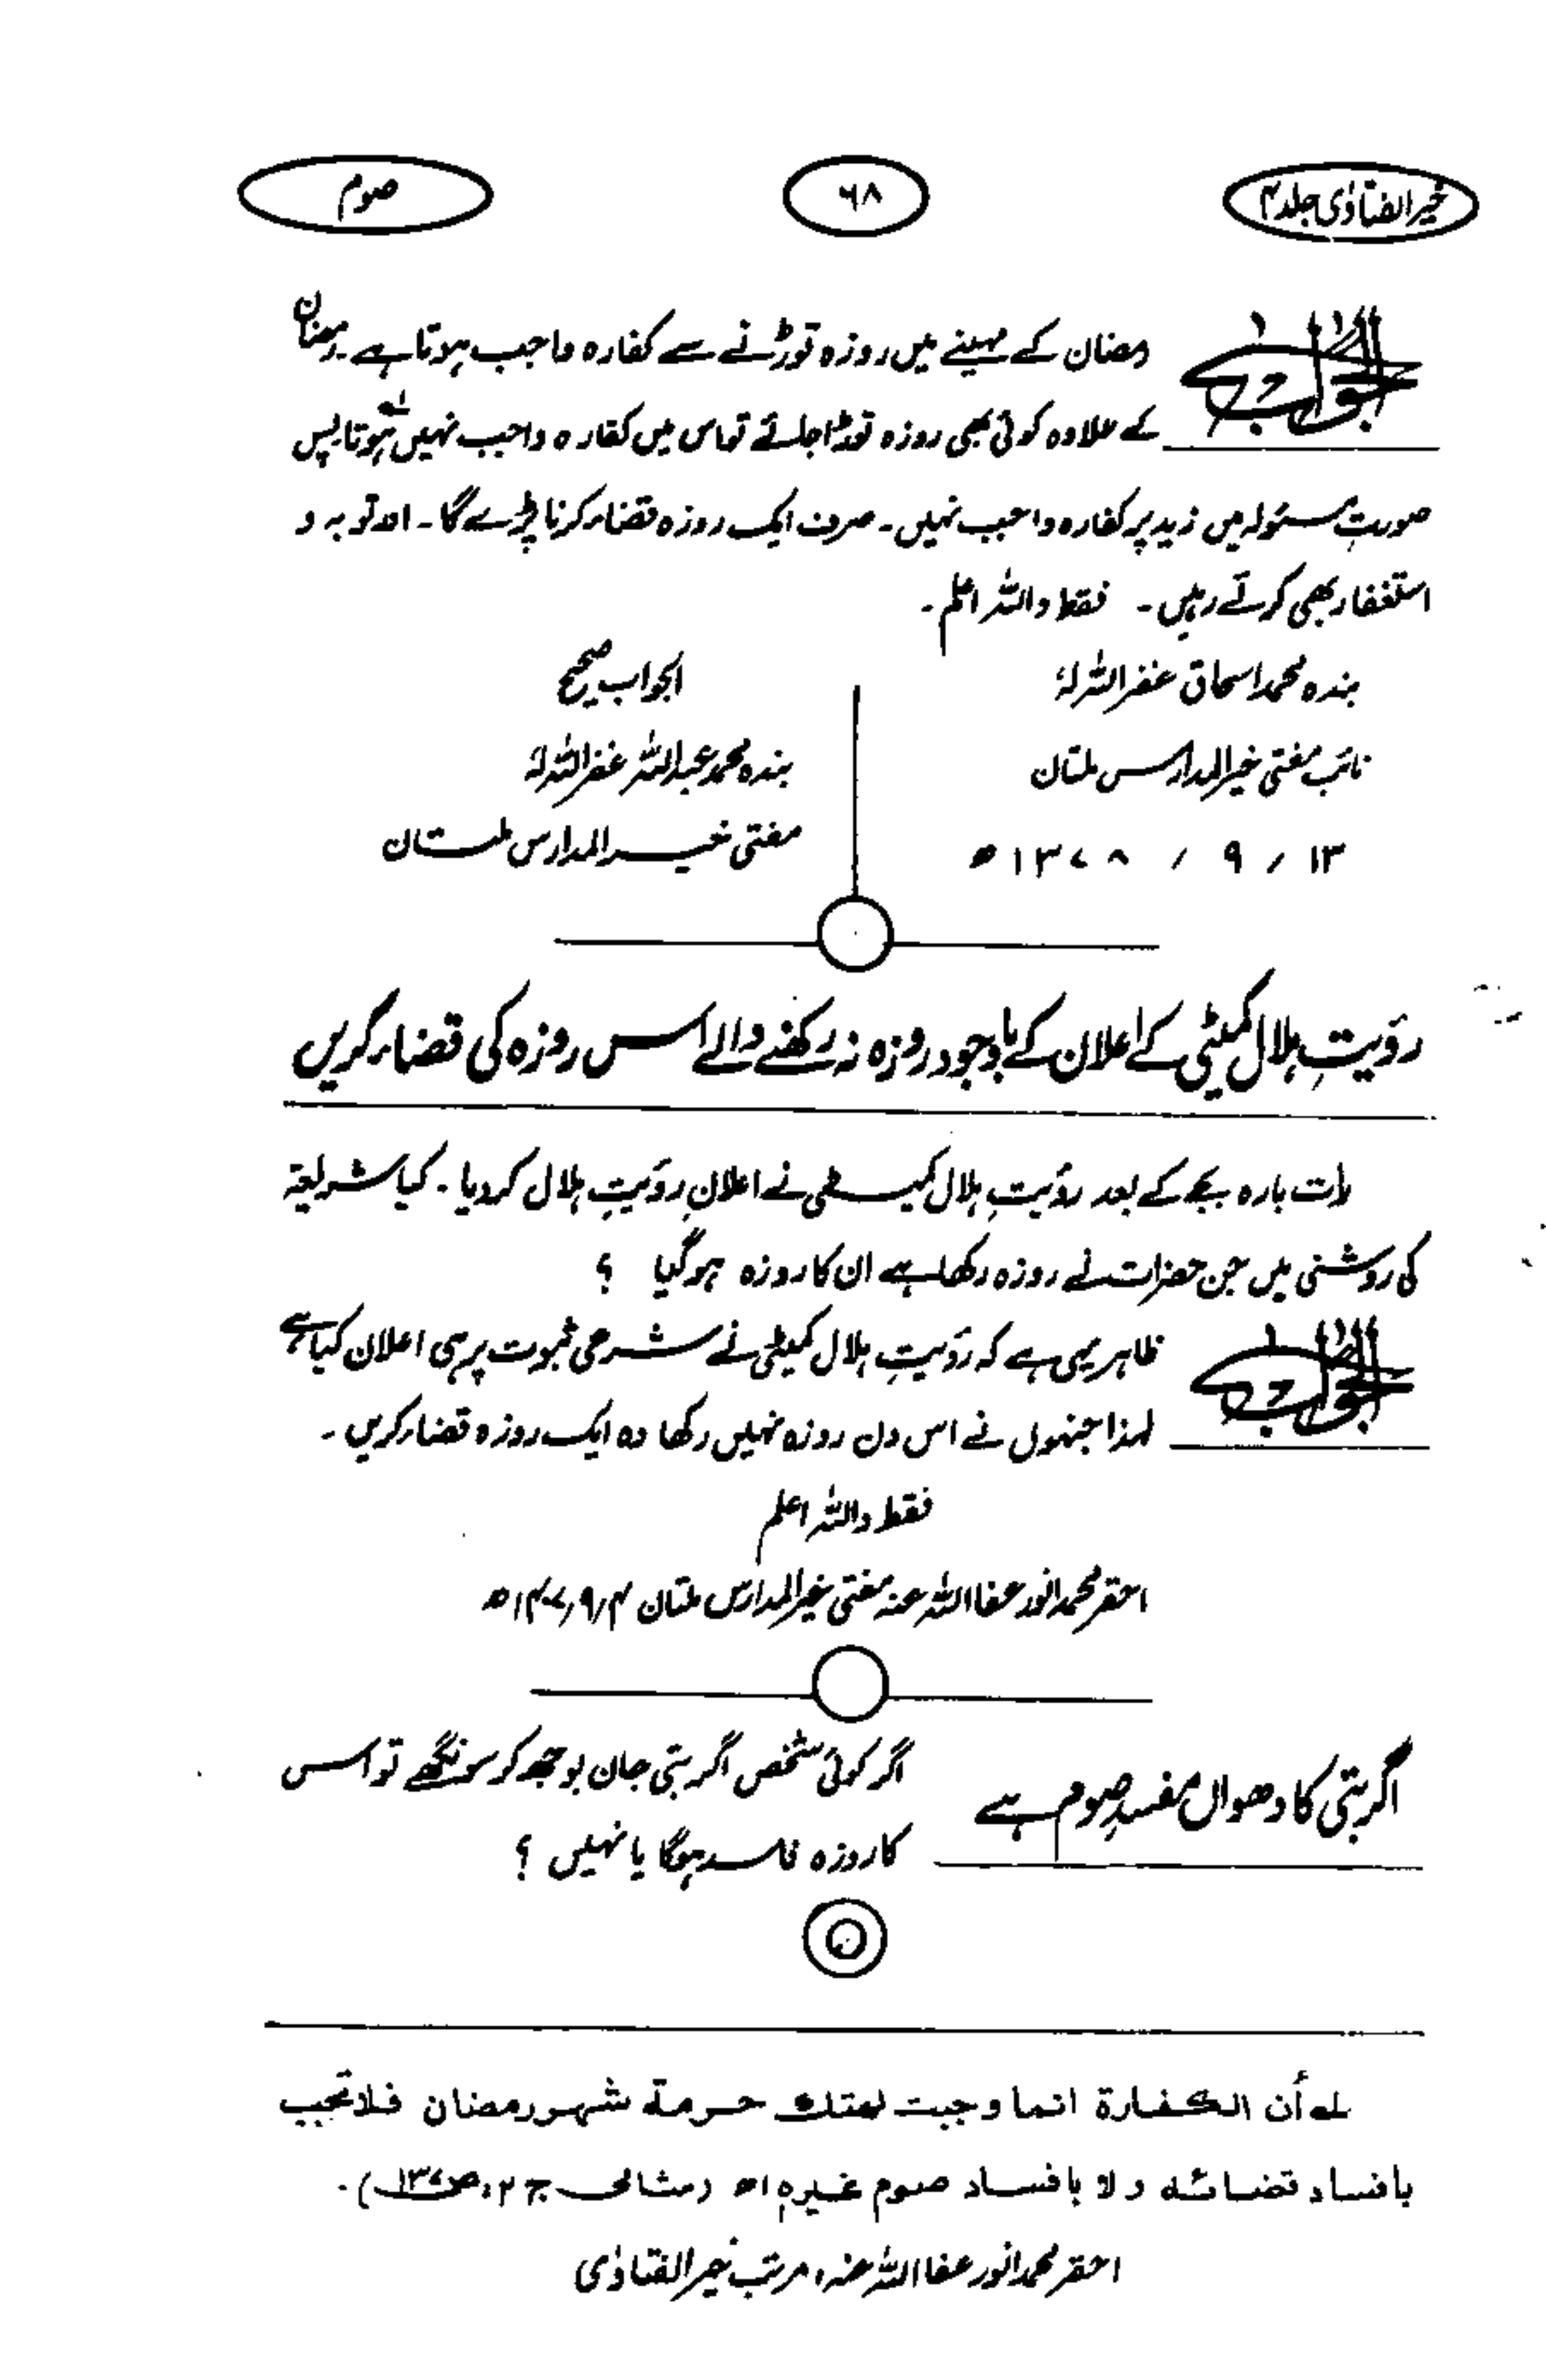 خیر الفتاوٰی جلد ۴
۶۸
صوم
الجواب
رمضان کے مہینے میں روزہ توڑنے سے کفارہ واجب ہوتا ہے۔ رمضان
کے علاوہ کوئی بھی روزہ توڑا جائے تو اس میں کفارہ واجب نہیں ہوتا لہ پس
صورتِ مسئولہ میں زید پر کفارہ واجب نہیں۔ صرف ایک روزہ قضاء کرنا پڑے گا۔ اور توبہ و
استغفار بھی کرتے رہیں۔ فقط واللہ اعلم۔
بندہ محمد اسحاق غفر اللہ لہٗ
نائب مفتی خیر المدارس ملتان
۱۳ / ۹ / ۱۳۷۸ ھ
الجواب صحیح
بندہ محمد عبد اللہ غفر اللہ لہٗ
مفتی خیر المدارس ملتان
رؤیتِ ہلال کمیٹی کے اعلان کے باوجود روزہ نہ رکھنے والے اس روزہ کی قضاء کریں
رات بارہ بجے کے بعد رؤیتِ ہلال کمیٹی نے اعلانِ رؤیتِ ہلال کر دیا۔ کیا شریعۃ
کی روشنی میں جن حضرات نے روزہ رکھا ہے ان کا روزہ ہو گیا ؟
الجواب
ظاہر یہی ہے کہ رؤیتِ ہلال کمیٹی نے شرعی ثبوت پر ہی اعلان کیا ہے
لہذا جنہوں نے اس دن روزہ نہیں رکھا وہ ایک روزہ قضاء کریں۔
فقط واللہ اعلم
احقر محمد انور عفا اللہ عنہ مفتی خیر المدارس ملتان ۴/۹/۱۴۰۷ھ
اگربتی کا دھواں مفسدِ صوم ہے
اگر کوئی شخص اگربتی جان بوجھ کر سونگھے تو اس
کا روزہ فاسد ہوگا یا نہیں ؟
لہ أن الكفارة انما وجبت لهتك حرمة شهر رمضان فلا تجب
بافساد قضائه ولا بافساد صوم غيره اھ (شامی ج ۲، ص ۱۳۷)۔
احقر محمد انور عفا اللہ عنہ، مرتب خیر الفتاوٰی